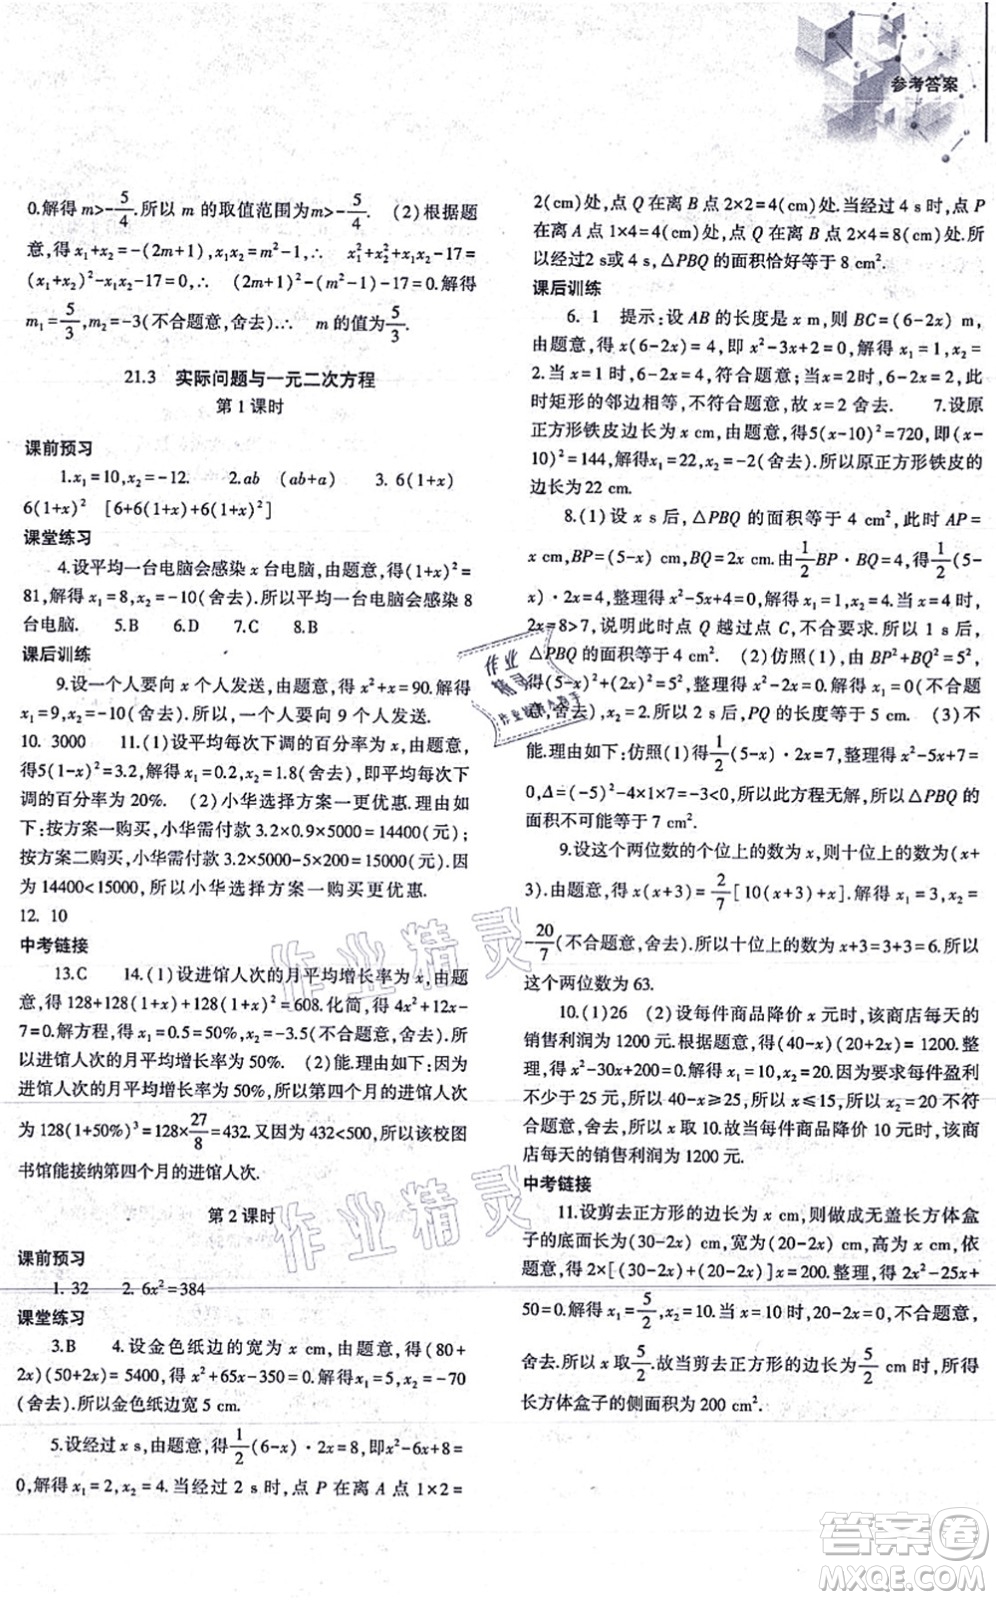 参考答案
0.解得 m>-5/4.所以 m 的取值范围为m>-5/4. (2)根据题
意,得 x₁+x₂=-(2m+1),x₁x₂=m²-1,∴ x₁²+x₂²+x₁x₂-17=
(x₁+x₂)²-x₁x₂-17=0,∴ (2m+1)²-(m²-1)-17=0.解得
m₁=5/3,m₂=-3(不合题意,舍去)∴ m 的值为5/3.
21.3 实际问题与一元二次方程
第 1 课时
课前预习
1.x₁=10,x₂=-12. 2.ab (ab+a) 3. 6(1+x)
6(1+x)² [6+6(1+x)+6(1+x)²]
课堂练习
4.设平均一台电脑会感染 x 台电脑,由题意,得(1+x)²=
81,解得 x₁=8,x₂=-10(舍去).所以平均一台电脑会感染 8
台电脑. 5.B 6.D 7.C 8.B
课后训练
9.设一个人要向 x 个人发送,由题意,得 x²+x=90.解得
x₁=9,x₂=-10(舍去).所以,一个人要向 9 个人发送.
10. 3000 11.(1)设平均每次下调的百分率为x,由题意,
得5(1-x)²=3.2,解得 x₁=0.2,x₂=1.8(舍去),即平均每次下
调的百分率为 20%. (2)小华选择方案一购买更优惠.理由如
下:按方案一购买,小华需付款 3.2×0.9×5000=14400(元);
按方案二购买,小华需付款 3.2×5000-5×200=15000(元).因
为 14400<15000,所以小华选择方案一购买更优惠.
12. 10
中考链接
13.C 14.(1)设进馆人次的月平均增长率为 x,由题
意,得 128+128(1+x)+128(1+x)²=608.化简,得 4x²+12x-
7=0.解方程,得 x₁=0.5=50%,x₂=-3.5(不合题意,舍去).所
以进馆人次的月平均增长率为 50%. (2)能.理由如下:因为
进馆人次的月平均增长率为 50%,所以第四个月的进馆人次
为 128(1+50%)³=128×27/8=432.又因为 432<500,所以该校图
书馆能接纳第四个月的进馆人次.
第 2 课时
课前预习
1. 32 2. 6x²=384
课堂练习
3.B 4.设金色纸边的宽为 x cm,由题意,得(80+
2x)(50+2x)=5400,得 x²+65x-350=0.解得x₁=5,x₂=-70
(舍去).所以金色纸边宽 5 cm.
5.设经过 x s,由题意,得1/2(6-x)·2x=8,即x²-6x+8=
0,解得 x₁=2,x₂=4.当经过 2 s 时,点 P 在离 A 点 1×2=
2(cm)处,点 Q 在离 B 点 2×2=4(cm)处.当经过 4 s 时,点 P
在离 A 点 1×4=4(cm)处,点 Q 在离 B 点 2×4=8(cm)处.所
以经过2 s或 4 s,△PBQ 的面积恰好等于 8 cm².
课后训练
6. 1 提示:设 AB 的长度是 x m,则 BC=(6-2x) m,
由题意,得 x(6-2x)=4,即 x²-3x+2=0,解得 x₁=1,x₂=
2.当 x=1时,6-2x=4,符合题意;当 x=2时,6-2x=2,此
时矩形的邻边相等,不符合题意,故 x=2 舍去. 7.设原
正方形铁皮边长为 x cm,由题意,得5(x-10)²=720,即(x-
10)²=144,解得x₁=22,x₂=-2(舍去).所以原正方形铁皮的
边长为 22 cm.
8.(1)设 x s 后,△PBQ 的面积等于 4 cm²,此时 AP=
x cm,BP=(5-x)cm,BQ=2x cm.由1/2BP·BQ=4,得1/2(5-
x)·2x=4,整理得 x²-5x+4=0,解得 x₁=1,x₂=4.当 x=4时,
2x=8>7,说明此时点 Q 越过点 C,不合要求.所以 1 s 后,
△PBQ 的面积等于 4 cm². (2)仿照(1),由 BP²+BQ²=5²,
得(5-x)²+(2x)²=5²,整理得 x²-2x=0,解得 x₁=0(不合题
意,舍去),x₂=2.所以 2 s后,PQ 的长度等于 5 cm. (3)不
能.理由如下:仿照(1)得1/2(5-x)·2x=7,整理得 x²-5x+7=
0,Δ=(-5)²-4×1×7=-3<0,所以此方程无解,所以△PBQ 的
面积不可能等于 7 cm².
9.设这个两位数的个位上的数为 x,则十位上的数为(x+
3).由题意,得 x(x+3)=2/7[10(x+3)+x].解得 x₁=3,x₂=
-20/7(不合题意,舍去).所以十位上的数为 x+3=3+3=6.所以
这个两位数为 63.
10.(1)26 (2)设每件商品降价 x 元时,该商店每天的
销售利润为 1200 元.根据题意,得(40-x)(20+2x)=1200.整
理,得 x²-30x+200=0.解得 x₁=10,x₂=20.因为要求每件盈利
不少于 25 元,所以 40-x≥25,所以 x≤15,所以 x₂=20 不符
合题意,舍去,所以 x 取 10.故当每件商品降价 10 元时,该商
店每天的销售利润为 1200 元.
中考链接
11.设剪去正方形的边长为 x cm,则做成无盖长方体盒
子的底面长为(30-2x) cm,宽为(20-2x) cm,高为 x cm,依
题意,得 2×[(30-2x)+(20-2x)]x=200.整理,得 2x²-25x+
50=0.解得 x₁=5/2,x₂=10.当 x=10 时,20-2x=0,不合题意,
舍去.所以 x 取5/2.故当剪去正方形的边长为5/2 cm 时,所得
长方体盒子的侧面积为 200 cm².
作业精灵
作业精灵
作业
精灵
答案卷
MXQE.COM